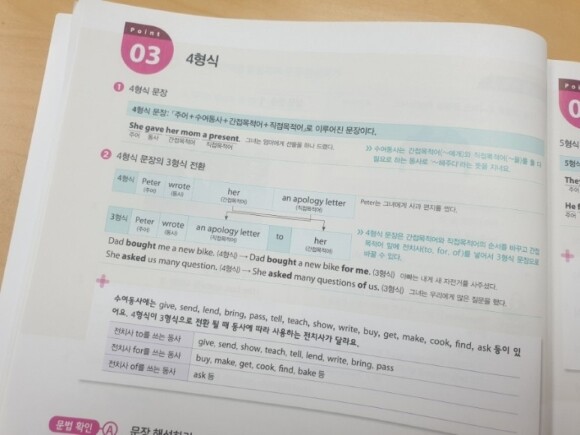 Point
03
4형식
1 4형식 문장
4형식 문장: 「주어+수여동사+간접목적어+직접목적어」로 이루어진 문장이다.
She gave her mom a present. 그녀는 엄마에게 선물을 하나 드렸다.
주어 동사 간접목적어 직접목적어
>> 수여동사는 간접목적어(~에게)와 직접목적어(~을)를 둘 다
필요로 하는 동사로 '~해주다'라는 뜻을 지녀요.
2 4형식 문장의 3형식 전환
4형식 Peter wrote her an apology letter Peter는 그녀에게 사과 편지를 썼다.
(주어) (동사) (간접목적어) (직접목적어)
3형식 Peter wrote an apology letter to her
(주어) (동사) (직접목적어) (간접목적어)
>> 4형식 문장은 간접목적어와 직접목적어의 순서를 바꾸고 간접
목적어 앞에 전치사(to, for, of)를 넣어서 3형식 문장으로
바꿀 수 있다.
Dad bought me a new bike. (4형식) → Dad bought a new bike for me. (3형식) 아빠는 내게 새 자전거를 사주셨다.
She asked us many question. (4형식) → She asked many questions of us. (3형식) 그녀는 우리에게 많은 질문을 했다.
수여동사에는 give, send, lend, bring, pass, tell, teach, show, write, buy, get, make, cook, find, ask 등이 있
어요. 4형식이 3형식으로 전환 될 때 동사에 따라 사용하는 전치사가 달라요.
전치사 to를 쓰는 동사 give, send, show, teach, tell, lend, write, bring, pass
전치사 for를 쓰는 동사 buy, make, get, cook, find, bake 등
전치사 of를 쓰는 동사 ask 등
문법 확인 A 문장 해석하기
Po
0
5형식
5형식
They
주어